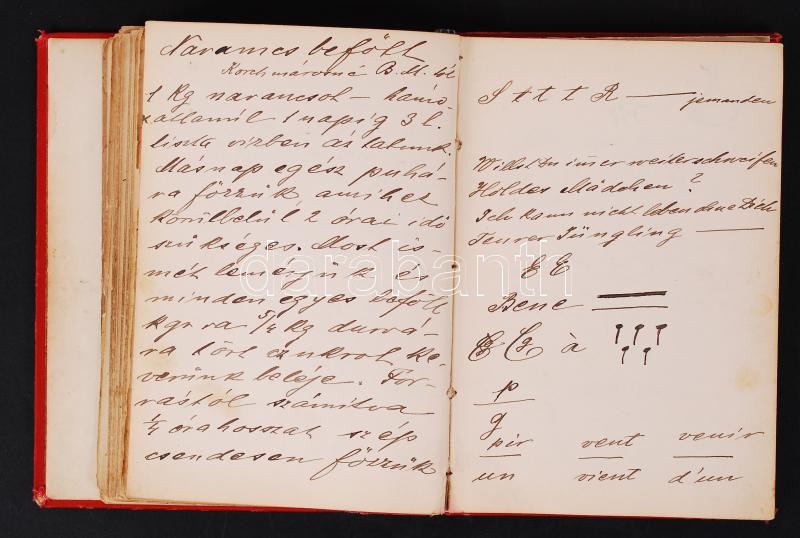 Narancs befőtt
Korchmárosné B. M. től
1 kg narancsot – hámo-
zatlanúl 1 napig 3 l.
tiszta vízben áztatunk.
Másnap egész puhá-
ra főzzük amihez
körülbelül 2 órai idő
szükséges. Most is-
mét lemérjük és
minden egyes befőtt
kgr ra 5/4 kg durvá-
ra tört czukrot ke-
verünk beléje. For-
rástól számítva
1/4 óra hosszat szép
csendesen főzzük
S t t t R — jemanden
Willst Du immer weiterschweifen
Holdes Mädchen?
Ich kann nicht leben ohne Dich
Teurer Jüngling —
Bene
à
p
g
pir vent venir
un vient d'un
darabanth